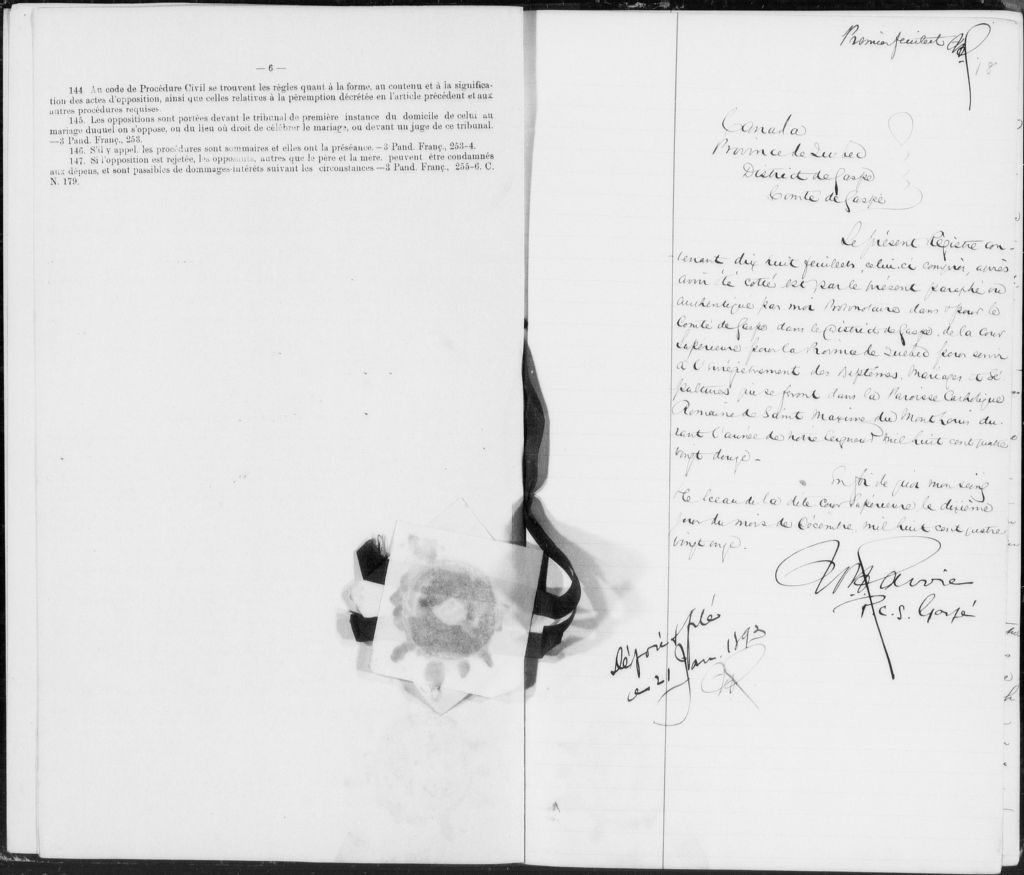 — 6 —
144 Au code de Procédure Civil se trouvent les règles quant à la forme, au contenu et à la significa-
tion des actes d'opposition, ainsi que celles relatives à la péremption décrétée en l'article précédent et aux
autres procédures requises.
145. Les oppositions sont portées devant le tribunal de première instance du domicile de celui au
mariage duquel on s'oppose, ou du lieu où droit de célébrer le mariage, ou devant un juge de ce tribunal.
—3 Pand. Franç., 253.
146. S'il y appel, les procédures sont sommaires et elles ont la préséance.—3 Pand. Franç., 253-4.
147. Si l'opposition est rejetée, les opposants, autres que le père et la mère, peuvent être condamnés
aux dépens, et sont passibles de dommages-intérêts suivant les circonstances.—3 Pand. Franç., 255-6. C.
N. 179.
Premier feuillet
18
Canada
Province de Québec
District de Gaspé
Comté de Gaspé
Le présent Régistre con-
tenant dix huit feuillets, celui-ci compris, après
avoir été cotté est par le présent paraphé ou
authentiqué par moi Protonotaire dans & pour le
Comté de Gaspé dans le District de Gaspé, de la Cour
Supérieure pour la Province de Québec pour servir
à l'Enrégistrement des Baptêmes, Mariages et Sé-
pultures qui se feront dans la Paroisse Catholique
Romaine de Saint Maxime du Mont Louis du-
rant l'année de Notre Seigneur Mil huit cent quatre
vingt douze.-
En foi de quoi mon seing
& le sceau de la dite Cour Supérieure le dixième
jour du mois de Décembre mil huit cent quatre
vingt onze.
P.C.S. Gaspé
Déposé & filé
ce 21 Jan. 1893